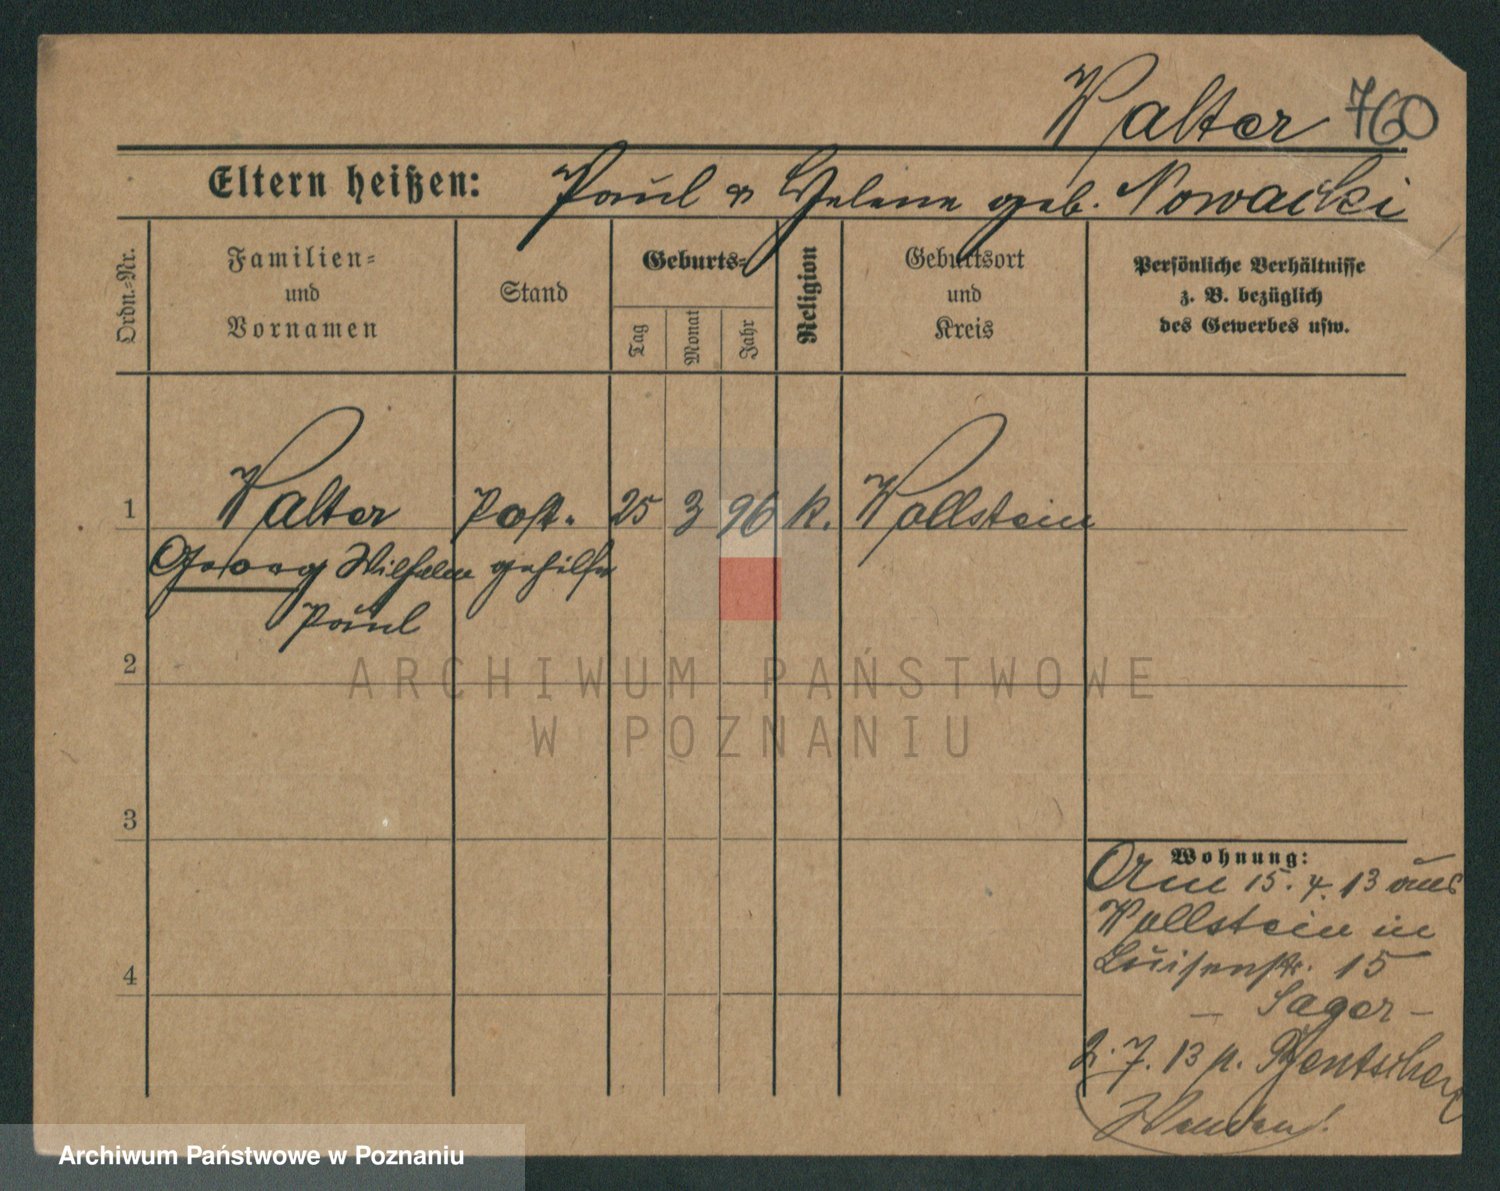 Walter 760
Eltern heißen: Paul u Helene geb. Nowacki
Ordn.-Nr.
Familien-
und
Vornamen
Stand
Geburts-
Tag
Monat
Jahr
Religion
Geburtsort
und
Kreis
Persönliche Verhältnisse
z. B. bezüglich
des Gewerbes usw.
1 Walter Post- 25 3 96 k. Wollstein
Georg Wilhelm gehilfe
Paul
2
ARCHIWUM PAŃSTWOWE
W POZNANIU
3
Wohnung:
Am 15. 4. 13 aus
Wollstein in
Luisenstr. 15
– Sager –
2. 7. 13 n. Bentschen
Archiwum Państwowe w Poznaniu